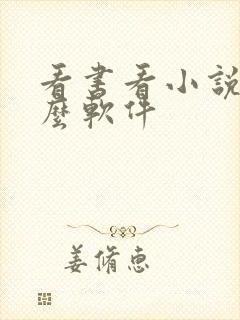 看书看小說
麼軟件
姜脩惠